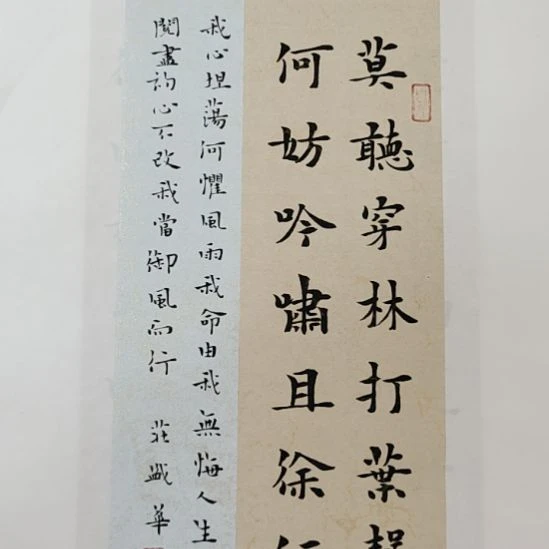 莫聽穿林打葉
何妨吟嘯且徐行
我心坦蕩何懼風雨我命由我無悔人生
閱盡初心不改我當御風而行 莊盛華